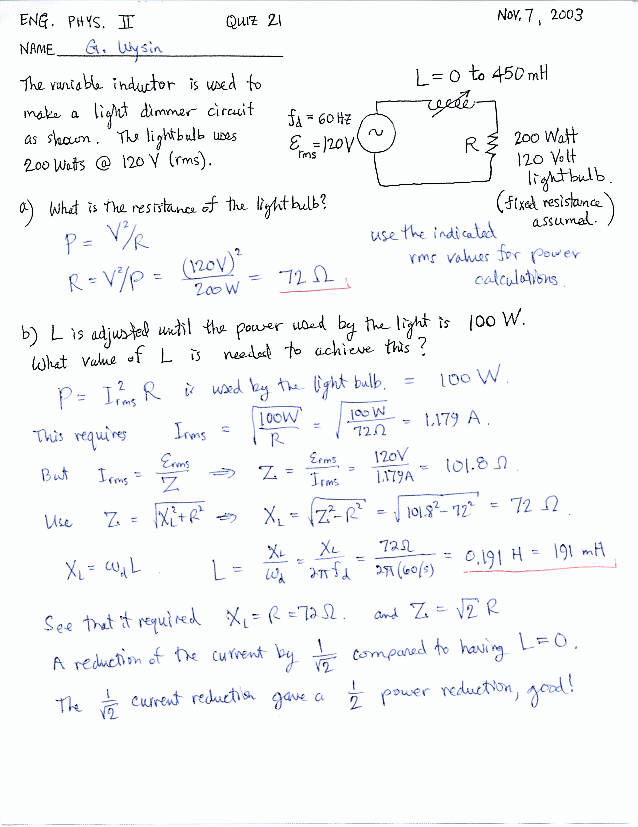 ENG. PHYS. II QUIZ 21 NOV. 7, 2003
NAME G. Wysin
The variable inductor is used to
make a light dimmer circuit
as shown. The lightbulb uses
200 Watts @ 120 V (rms).
L = 0 to 450 mH
f_d = 60 Hz
ℰ_rms = 120V
~
R
200 Watt
120 Volt
lightbulb.
(fixed resistance
assumed.)
a) What is the resistance of the lightbulb?
P = V²/R
R = V²/P = (120V)²/200W = 72 Ω
use the indicated
rms values for power
calculations.
b) L is adjusted until the power used by the light is 100 W.
What value of L is needed to achieve this?
P = I²_rms R is used by the light bulb. = 100 W.
This requires I_rms = √(100W/R) = √(100W/72Ω) = 1.179 A.
But I_rms = ℰ_rms/Z ⇒ Z = ℰ_rms/I_rms = 120V/1.179A = 101.8 Ω
Use Z = √(X_L²+R²) ⇒ X_L = √(Z²-R²) = √(101.8²-72²) = 72 Ω
X_L = ω_d L. L = X_L/ω_d = X_L/2πf_d = 72Ω/2π(60/s) = 0.191 H = 191 mH
See that it required X_L = R = 72Ω. and Z = √2 R
A reduction of the current by 1/√2 compared to having L = 0.
The 1/√2 current reduction gave a 1/2 power reduction, good!